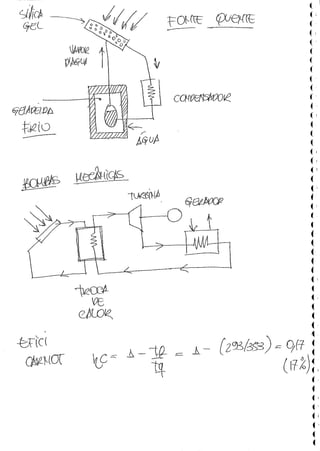 SÍLICA
GEL
FONTE QUENTE
VAPOR
D'ÁGUA
CONDENSADOR
GELADEIRA
FRIO
ÁGUA
BOMBAS MECÂNICAS
TURBINA
GERADOR
TROCA
DE
CALOR
EFICI
CARNOT
ηC = 1 - tf/tq = 1 - (293/353) = 0,17
(17%)